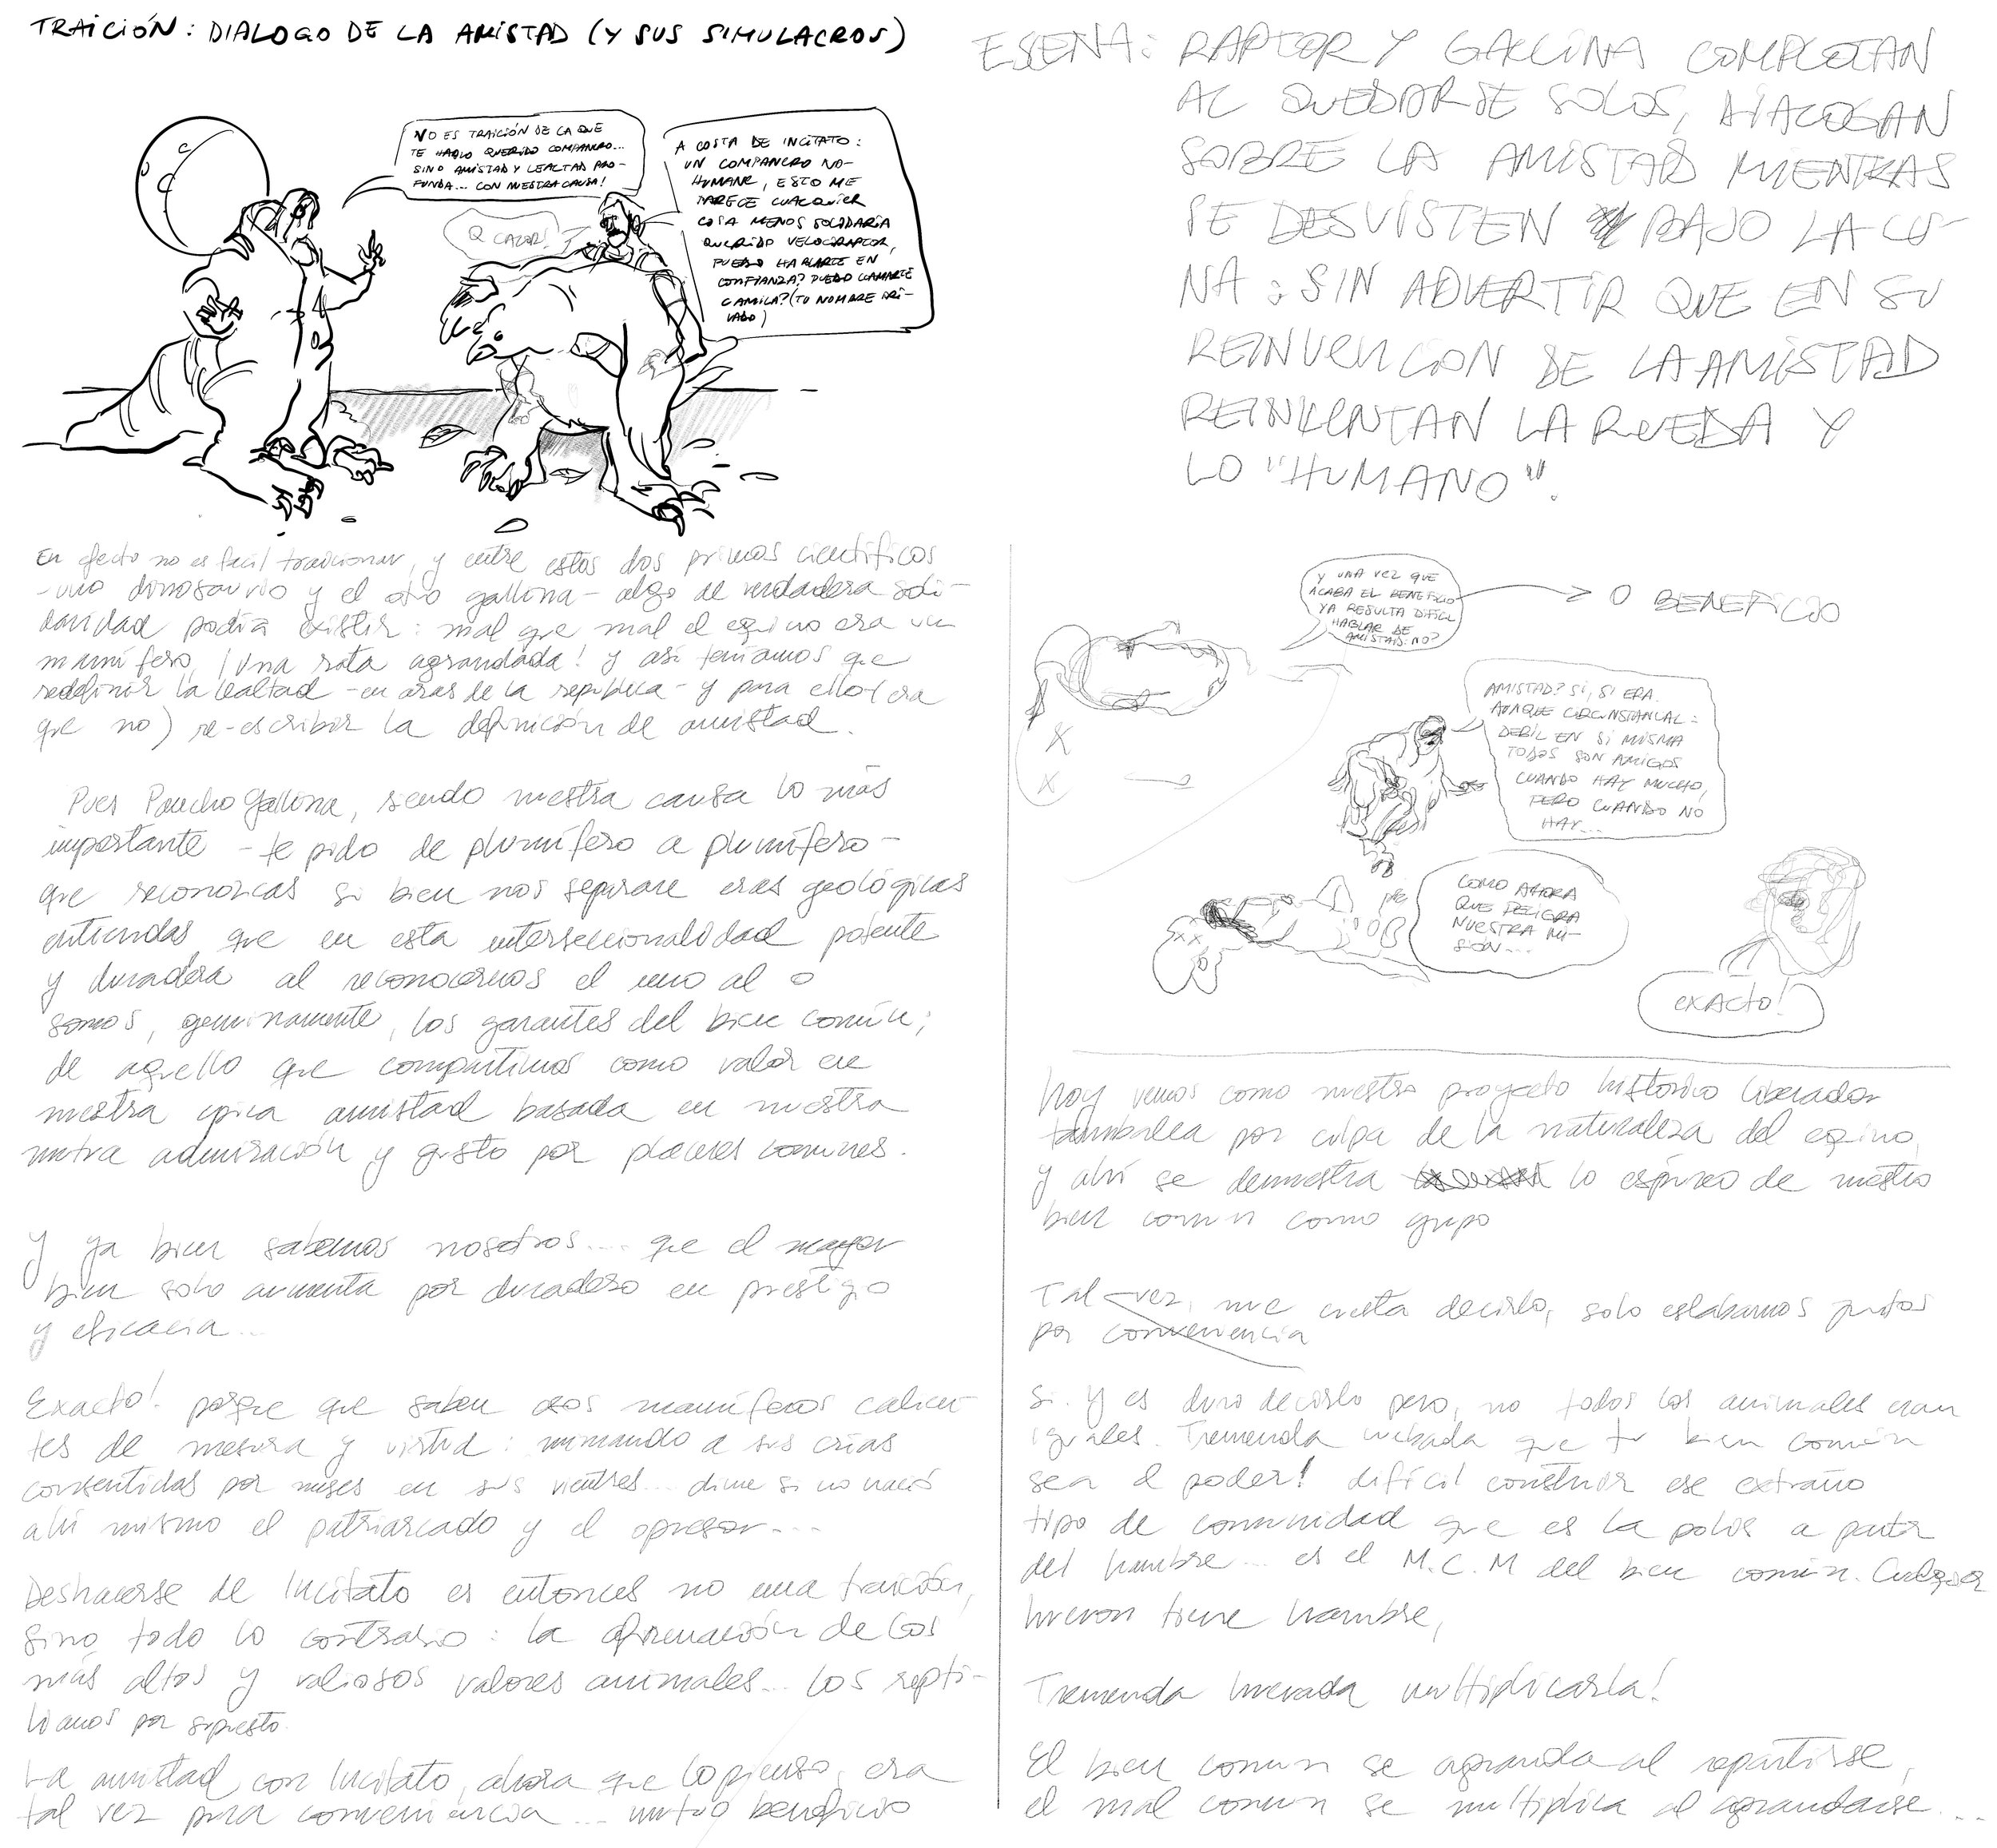 TRAICIÓN: DIALOGO DE LA AMISTAD (Y SUS SIMULACROS)
NO ES TRAICIÓN DE LA QUE
TE HABLO QUERIDO COMPANERO...
SINO AMISTAD Y LEALTAD PRO-
FUNDA... CON NUESTRA CAUSA!
A COSTA DE INCITATO:
UN COMPANERO NO-
HUMANE, ESTO ME
PARECE CUALQUIER
COSA MENOS SOLIDARIA
QUERIDO VELOCIRAPTOR,
PUEDO HABLARTE EN
CONFIANZA? PUEDO LLAMARTE
CAMILA? (TU NOMBRE PRI-
VADO)
En efecto no es fácil traicionar, y entre estos dos primos científicos
-uno dinosaurio y el otro gallina- algo de verdadera soli-
daridad podía existir: mal que mal el equino era un
mamífero, ¡una rata agrandada! y así teníamos que
redefinir la lealtad -en aras de la república- y para ello (era
que no) re-escribir la definición de amistad.
Pues Pancho Gallina, siendo nuestra causa lo más
importante - te pido de plumífero a plumífero -
que reconozcas si bien nos separan eras geológicas
entiendas que en esta interseccionalidad potente
y duradera al reconocernos el uno al o
somos, genuinamente, los garantes del bien común;
de aquello que compartimos como valor en
nuestra épica amistad basada en nuestra
mutua admiración y gusto por placeres comunes.
y ya bien sabemos nosotros.... que el mayor
bien solo aumenta por duradero en prestigio
y eficacia...
Exacto! porque que saben esos mamíferos calien-
tes de mesura y virtud: mimando a sus crías
consentidas por meses en sus vientres... dime si no nació
ahí mismo el patriarcado y el opresor...
Deshacerse de Incitato es entonces no una traición,
sino todo lo contrario: la afirmación de los
más altos y valiosos valores animales... los repti-
lianos por supuesto.
La amistad con Incitato, ahora que lo pienso, era
tal vez pura conveniencia... mutuo beneficio
ESENA: RAPTOR Y GALLINA COMPLOTAN
AL QUEDARSE SOLOS, DIALOGAN
SOBRE LA AMISTAD MIENTRAS
SE DESVISTEN BAJO LA LU-
NA: SIN ADVERTIR QUE EN SU
REINVENCION DE LA AMISTAD
REINVENTAN LA RUEDA Y
LO "HUMANO".
Y UNA VEZ QUE
ACABA EL BENEFICIO
YA RESULTA DIFICIL
HABLAR DE
AMISTAD: NO?
O BENEFICIO
AMISTAD? SI, SI ERA.
AUNQUE CIRCUNSTANCIAL:
DEBIL EN SI MISMA
TODOS SON AMIGOS
CUANDO HAY MUCHO,
PERO CUANDO NO
HAY...
COMO AHORA
QUE PELIGRA
NUESTRA MI-
SIÓN...
EXACTO!
Hoy vemos como nuestro proyecto histórico liberador
tambalea por culpa de la naturaleza del equino,
y ahí se demuestra lo espúreo de nuestro
bien común como grupo
Tal vez, me cuesta decirlo, solo estabamos juntos
por conveniencia
Si. Y es duro decirlo pero, no todos los animales eran
iguales. Tremenda huebada que tu bien común
sea el poder! difícil construir ese extraño
tipo de comunidad que es la polis a partir
del hambre... es el M.C.M del bien común. Cualquier
hueron tiene hambre,
Tremenda huevada multiplicarla!
El bien comun se agranda al repartirse,
el mal comun se multiplica al agrandarse...